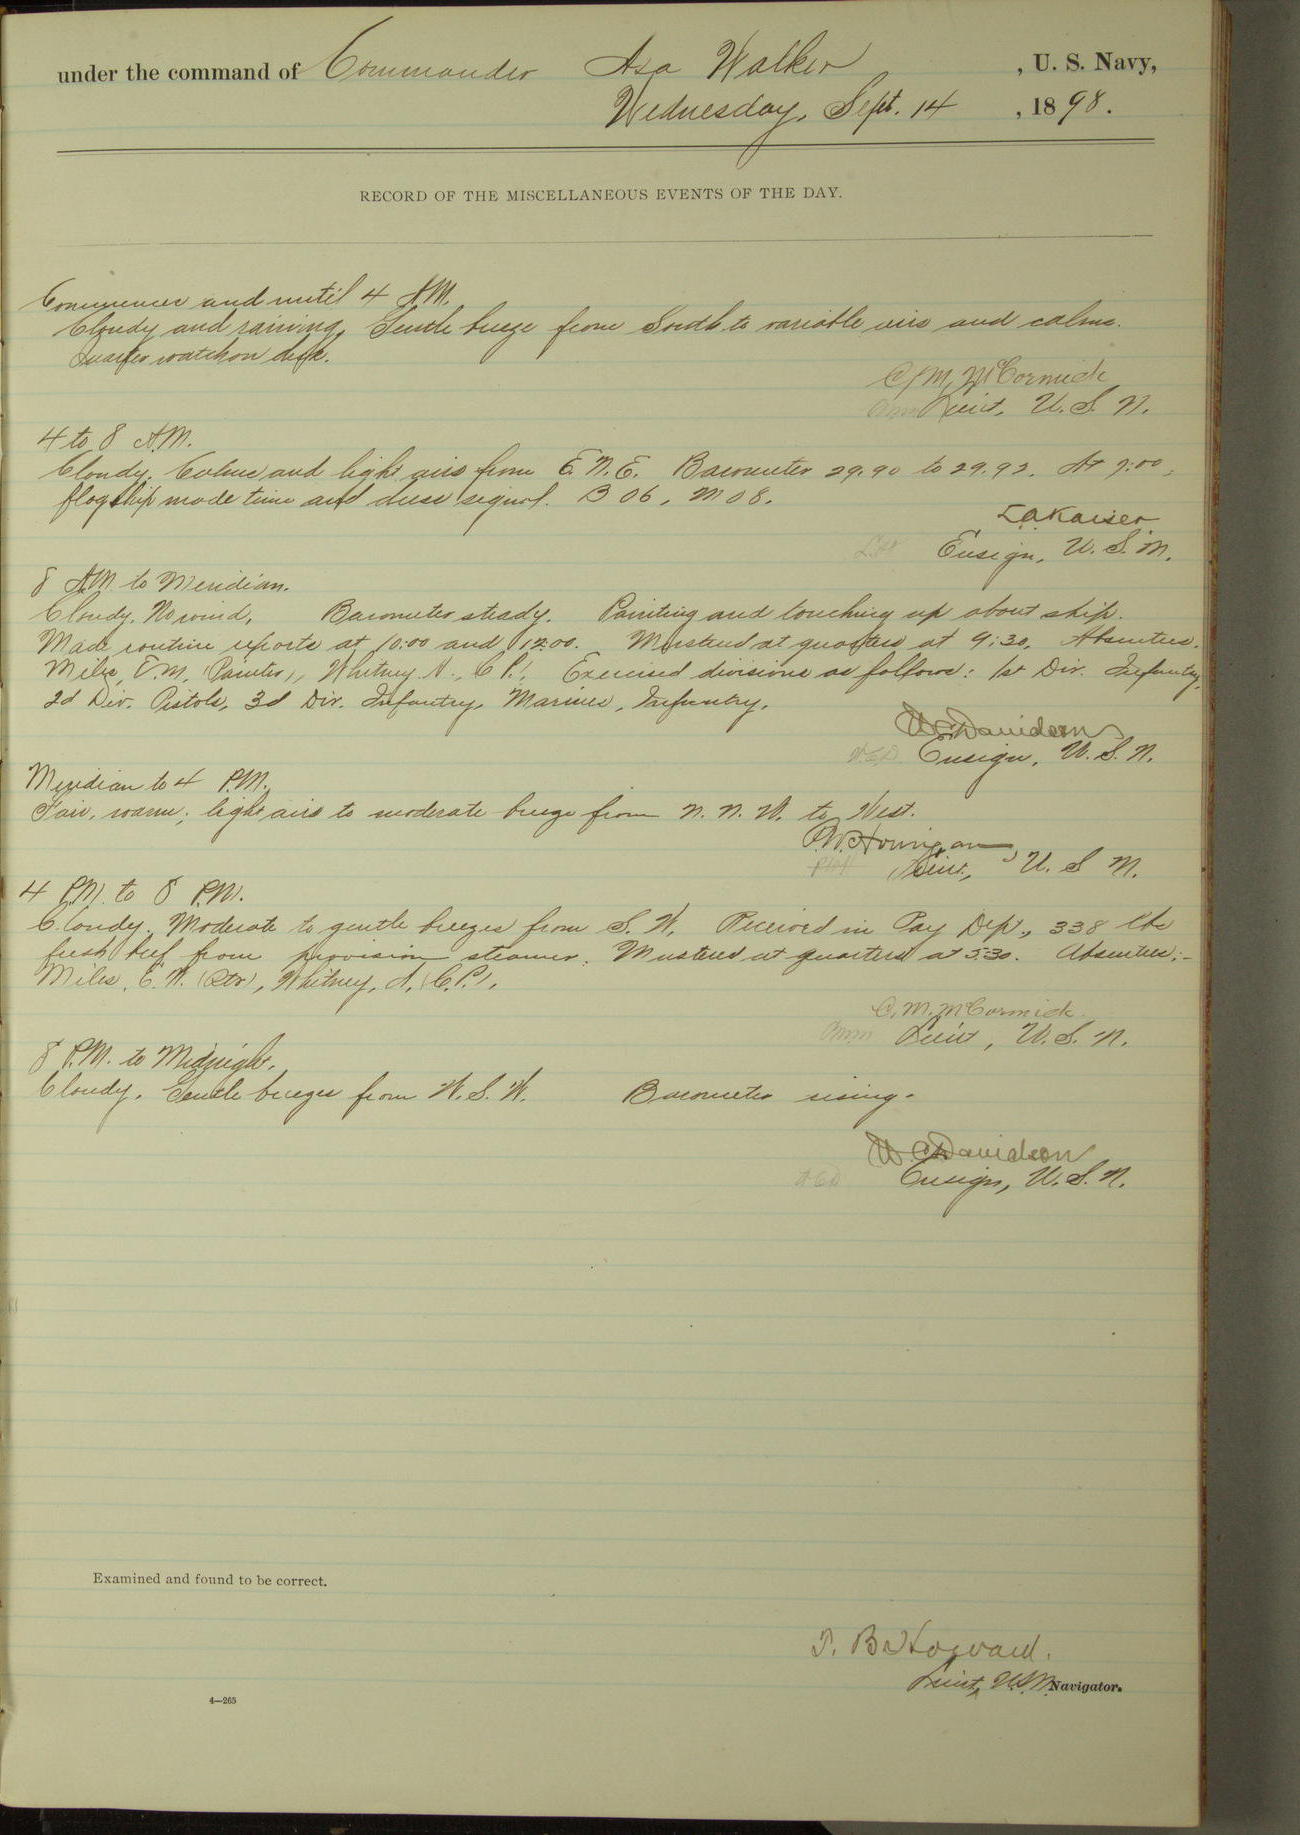 under the command of Commander Asa Walker, U. S. Navy,
Wednesday, Sept. 14, 1898.
RECORD OF THE MISCELLANEOUS EVENTS OF THE DAY.
Commences and until 4 A.M.
Cloudy and raining. Gentle breeze from South to variable airs and calms.
Quarter watch on deck.
C. M. McCormick
Lieut, U. S. N.
4 to 8 A.M.
Cloudy. Calms and light airs from E. N. E. Barometer 29.90 to 29.92. At 7:00,
flagship made time and dress signal. B 06, M 08.
L A Kaiser
Ensign, U. S. N.
8 A.M. to Meridian.
Cloudy. No wind, Barometer steady. Painting and touching up about ship.
Made routine reports at 10:00 and 12:00. Mustered at quarters at 9:30, Absentees.
Miles, E. M. (Painter), Whitney A., C P.! Exercised divisions as follows: 1st Div. Infantry,
2d Div. Pistols, 3d Div. Infantry, Marines, Infantry.
W. C. Davidson
W.C.D. Ensign, U. S. N.
Meridian to 4 P.M.
Fair, warm; light airs to moderate breeze from N. N. W. to West.
P. W. Hourigan,
PWH Lieut, U. S N.
4 P.M. to 8 P.M.
Cloudy. Moderate to gentle breezes from S. W. Received in Pay Dept., 338 lbs
fresh beef from provision steamer. Mustered at quarters at 5:30. Absentees:-
Miles, E. W. (Ptr), Whitney, A. (C.P.).
C. M. McCormick
Lieut, U. S. N.
8 P.M. to Midnight.
Cloudy. Gentle breezes from W. S. W. Barometer rising.
W. C. Davidson
WCD Ensign, U. S. N.
Examined and found to be correct.
T. B. Howard.
Lieut, U.S.N. Navigator.
4—265